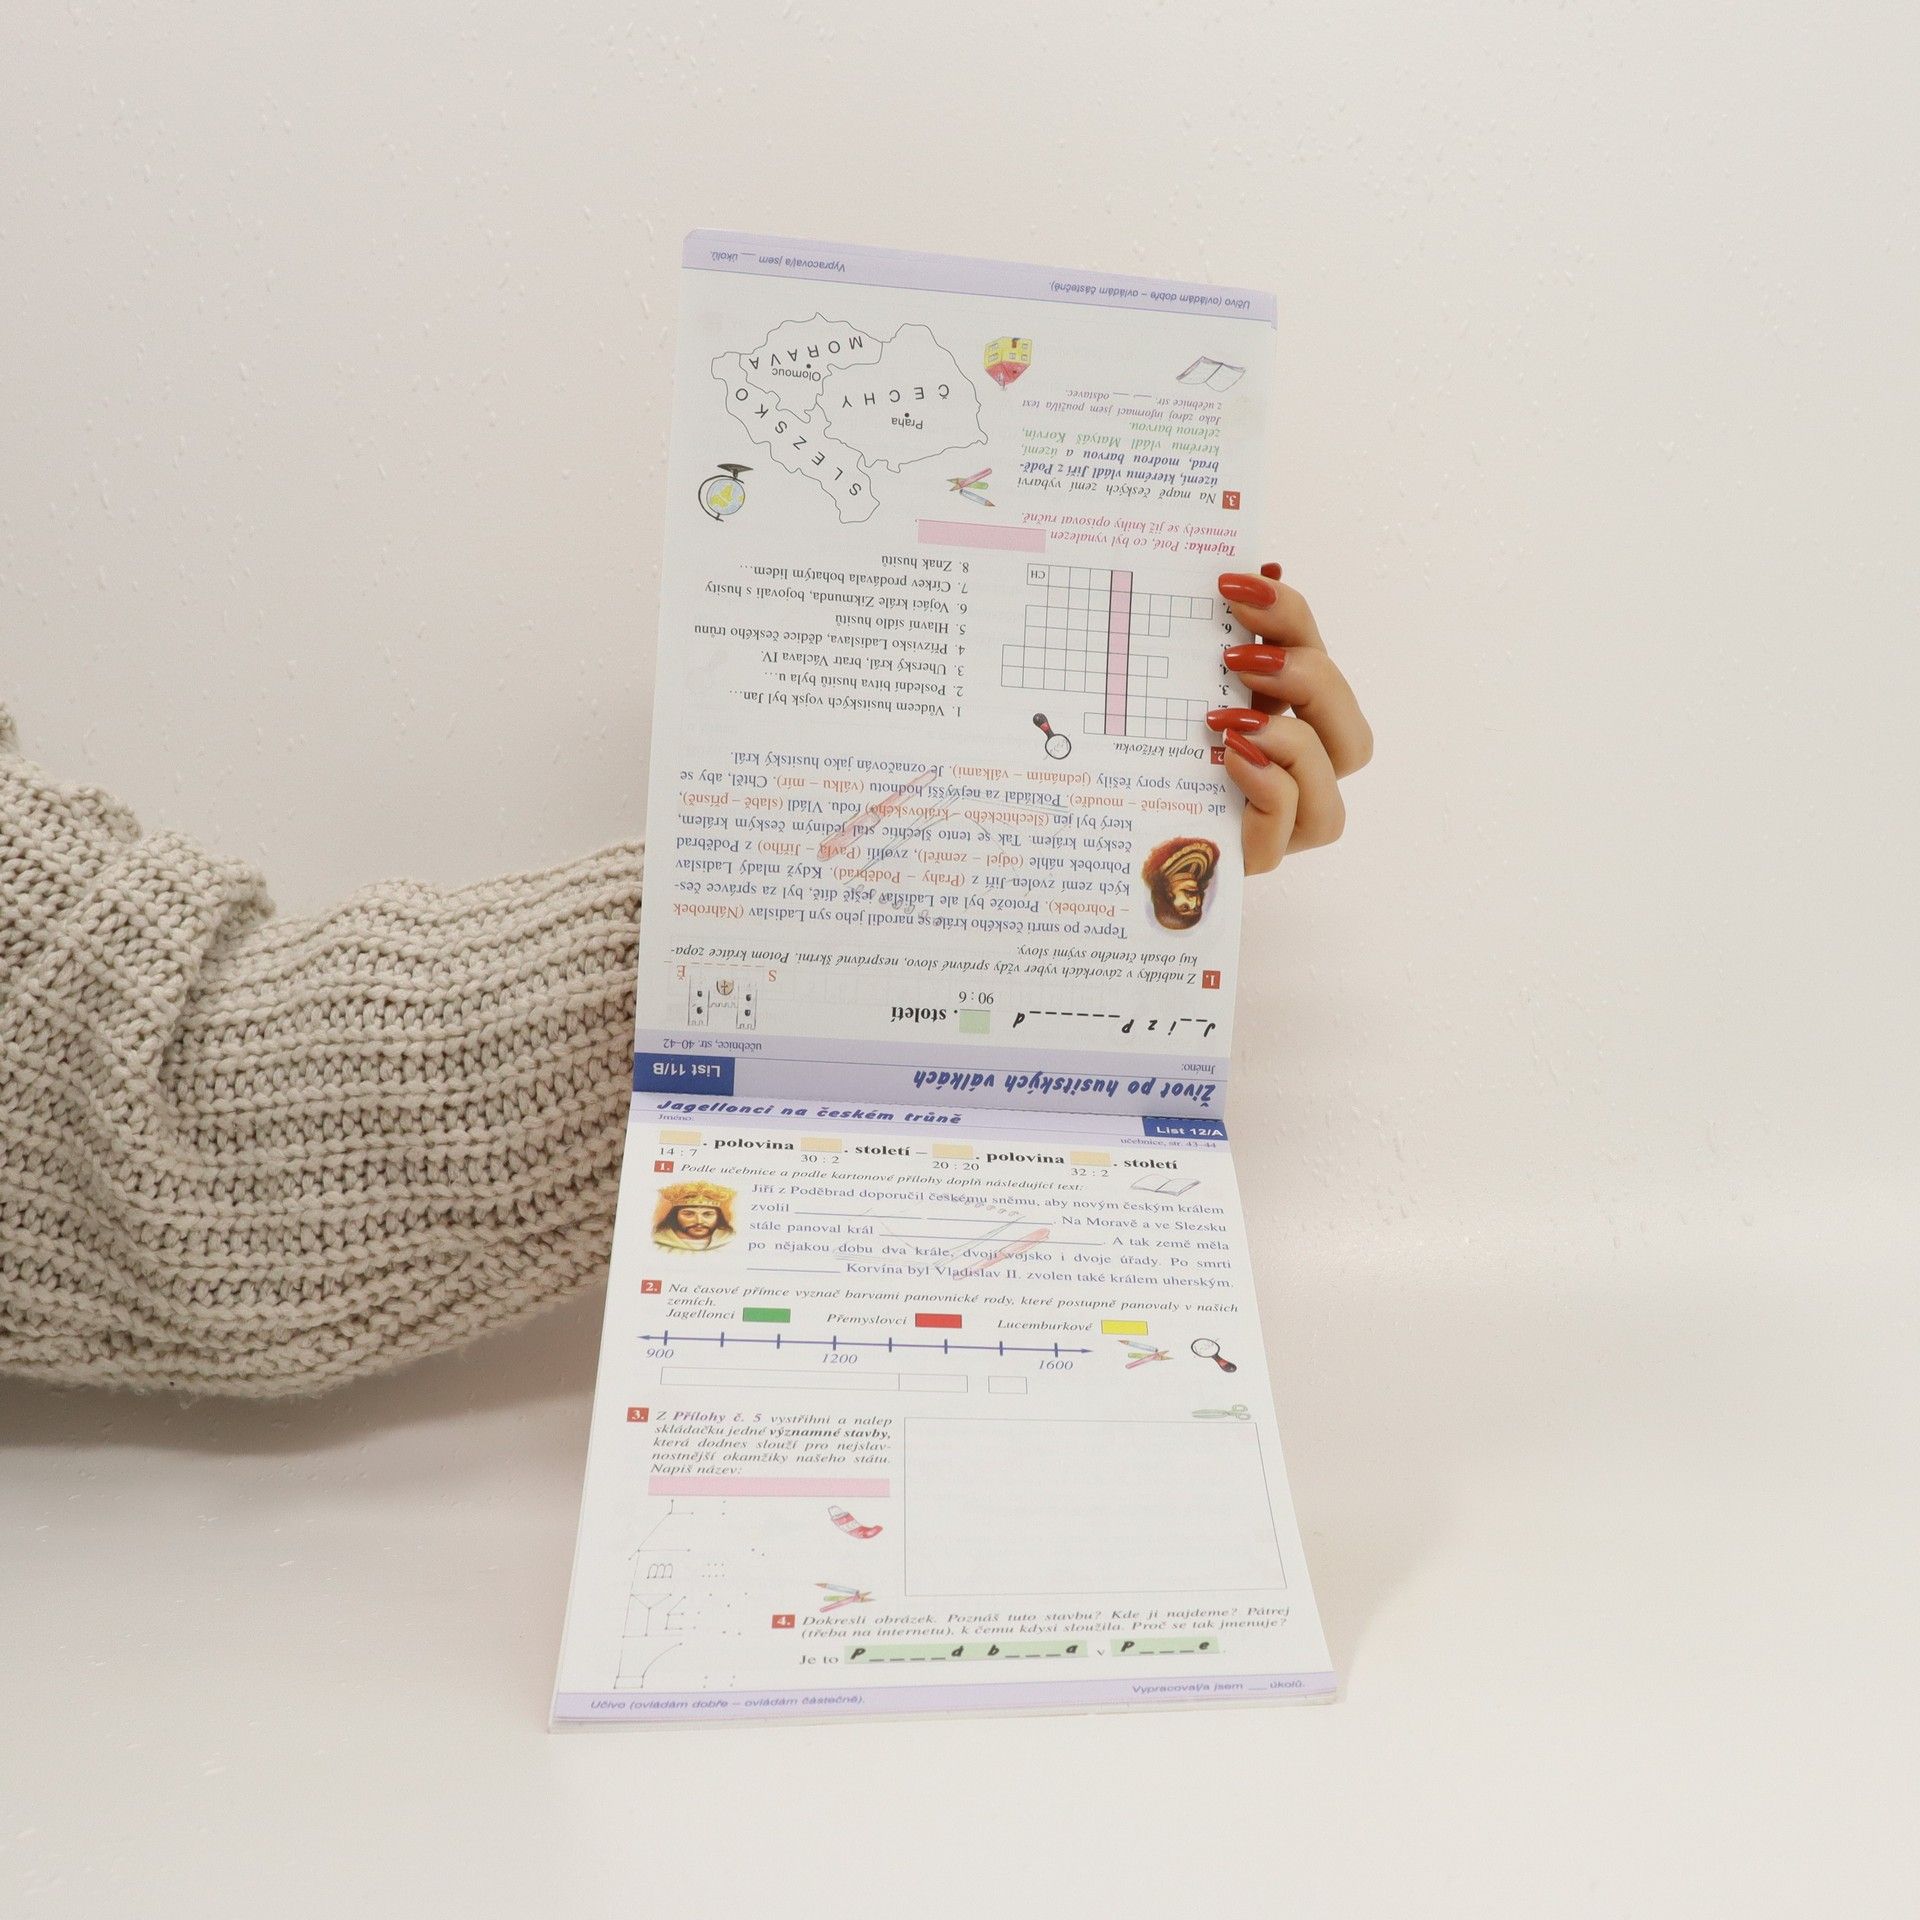 Život po husitských válkách
List 11/B
Jméno:
učebnice, str. 40–42
J__i z P_______d
. století
90 : 6
S
Ě
1. Z nabídky v závorkách vyber vždy správné slovo, nesprávné škrtni. Potom krátce zopa-
kuj obsah čteného svými slovy.
Teprve po smrti českého krále se narodil jeho syn Ladislav (Náhrobek
– Pohrobek). Protože byl ale Ladislav ještě dítě, byl za správce čes-
kých zemí zvolen Jiří z (Prahy – Poděbrad). Když mladý Ladislav
Pohrobek náhle (odjel – zemřel), zvolili (Pavla – Jiřího) z Poděbrad
českým králem. Tak se tento šlechtic stal jediným českým králem,
který byl jen (šlechtického – královského) rodu. Vládl (slabě – přísně),
ale (lhostejně – moudře). Pokládal za nejvyšší hodnotu (válku – mír). Chtěl, aby se
všechny spory řešily (jednáním – válkami). Je označován jako husitský král.
2. Doplň křížovku.
1. Vůdcem husitských vojsk byl Jan…
2. Poslední bitva husitů byla u…
3. Uherský král, bratr Václava IV.
4. Přízvisko Ladislava, dědice českého trůnu
5. Hlavní sídlo husitů
6. Vojáci krále Zikmunda, bojovali s husity
7. Církev prodávala bohatým lidem…
8. Znak husitů
2.
3.
4.
6.
7.
CH
Tajenka: Poté, co byl vynalezen
nemusely se již knihy opisovat ručně.
3. Na mapě českých zemí vybarvi
území, kterému vládl Jiří z Podě-
brad, modrou barvou a území,
kterému vládl Matyáš Korvín,
zelenou barvou.
Jako zdroj informací jsem použil/a text
z učebnice str. ___ ___ odstavec.
SLEZSKO
Praha
ČECHY
Olomouc
MORAVA
Učivo (ovládám dobře – ovládám částečně).
Vypracoval/a jsem ___ úkolů.
Jagellonci na českém trůně
List 12/A
Jméno:
učebnice, str. 43–44
. polovina . století – . polovina . století
14 : 7 30 : 2 20 : 20 32 : 2
1. Podle učebnice a podle kartonové přílohy doplň následující text:
Jiří z Poděbrad doporučil českému sněmu, aby novým českým králem
zvolil ____________ ____________. Na Moravě a ve Slezsku
stále panoval král ____________________. A tak země měla
po nějakou dobu dva krále, dvojí vojsko i dvoje úřady. Po smrti
__________ Korvína byl Vladislav II. zvolen také králem uherským.
2. Na časové přímce vyznač barvami panovnické rody, které postupně panovaly v našich
zemích.
Jagellonci Přemyslovci Lucemburkové
900 1200 1600
3. Z Přílohy č. 5 vystřihni a nalep
skládačku jedné významné stavby,
která dodnes slouží pro nejslav-
nostnější okamžiky našeho státu.
Napiš název:
4. Dokresli obrázek. Poznáš tuto stavbu? Kde ji najdeme? Pátrej
(třeba na internetu), k čemu kdysi sloužila. Proč se tak jmenuje?
Je to P____d b___a v P___e.
Učivo (ovládám dobře – ovládám částečně).
Vypracoval/a jsem ___ úkolů.